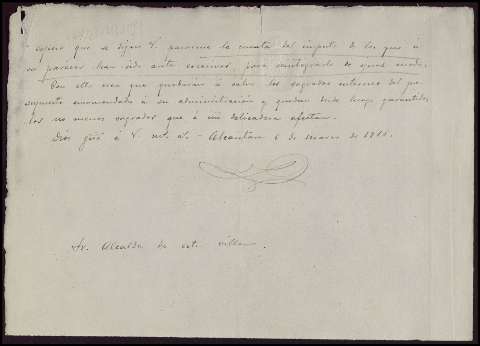 espero que se digne V. pasarme la cuenta del importe de los que á
su parecer han sido ante excesivos, para reintegrarlo de igual modo.
Con ello creo que quedarán á salvo los sagrados intereses del
encomendado á su administracion y quedan desde luego garantidos
los no menos sagrados que á mi delicadeza afectan.
Dios gue á V. m. a. - Alcántara 6 de Marzo de
Sr. Alcalde de esta villa.